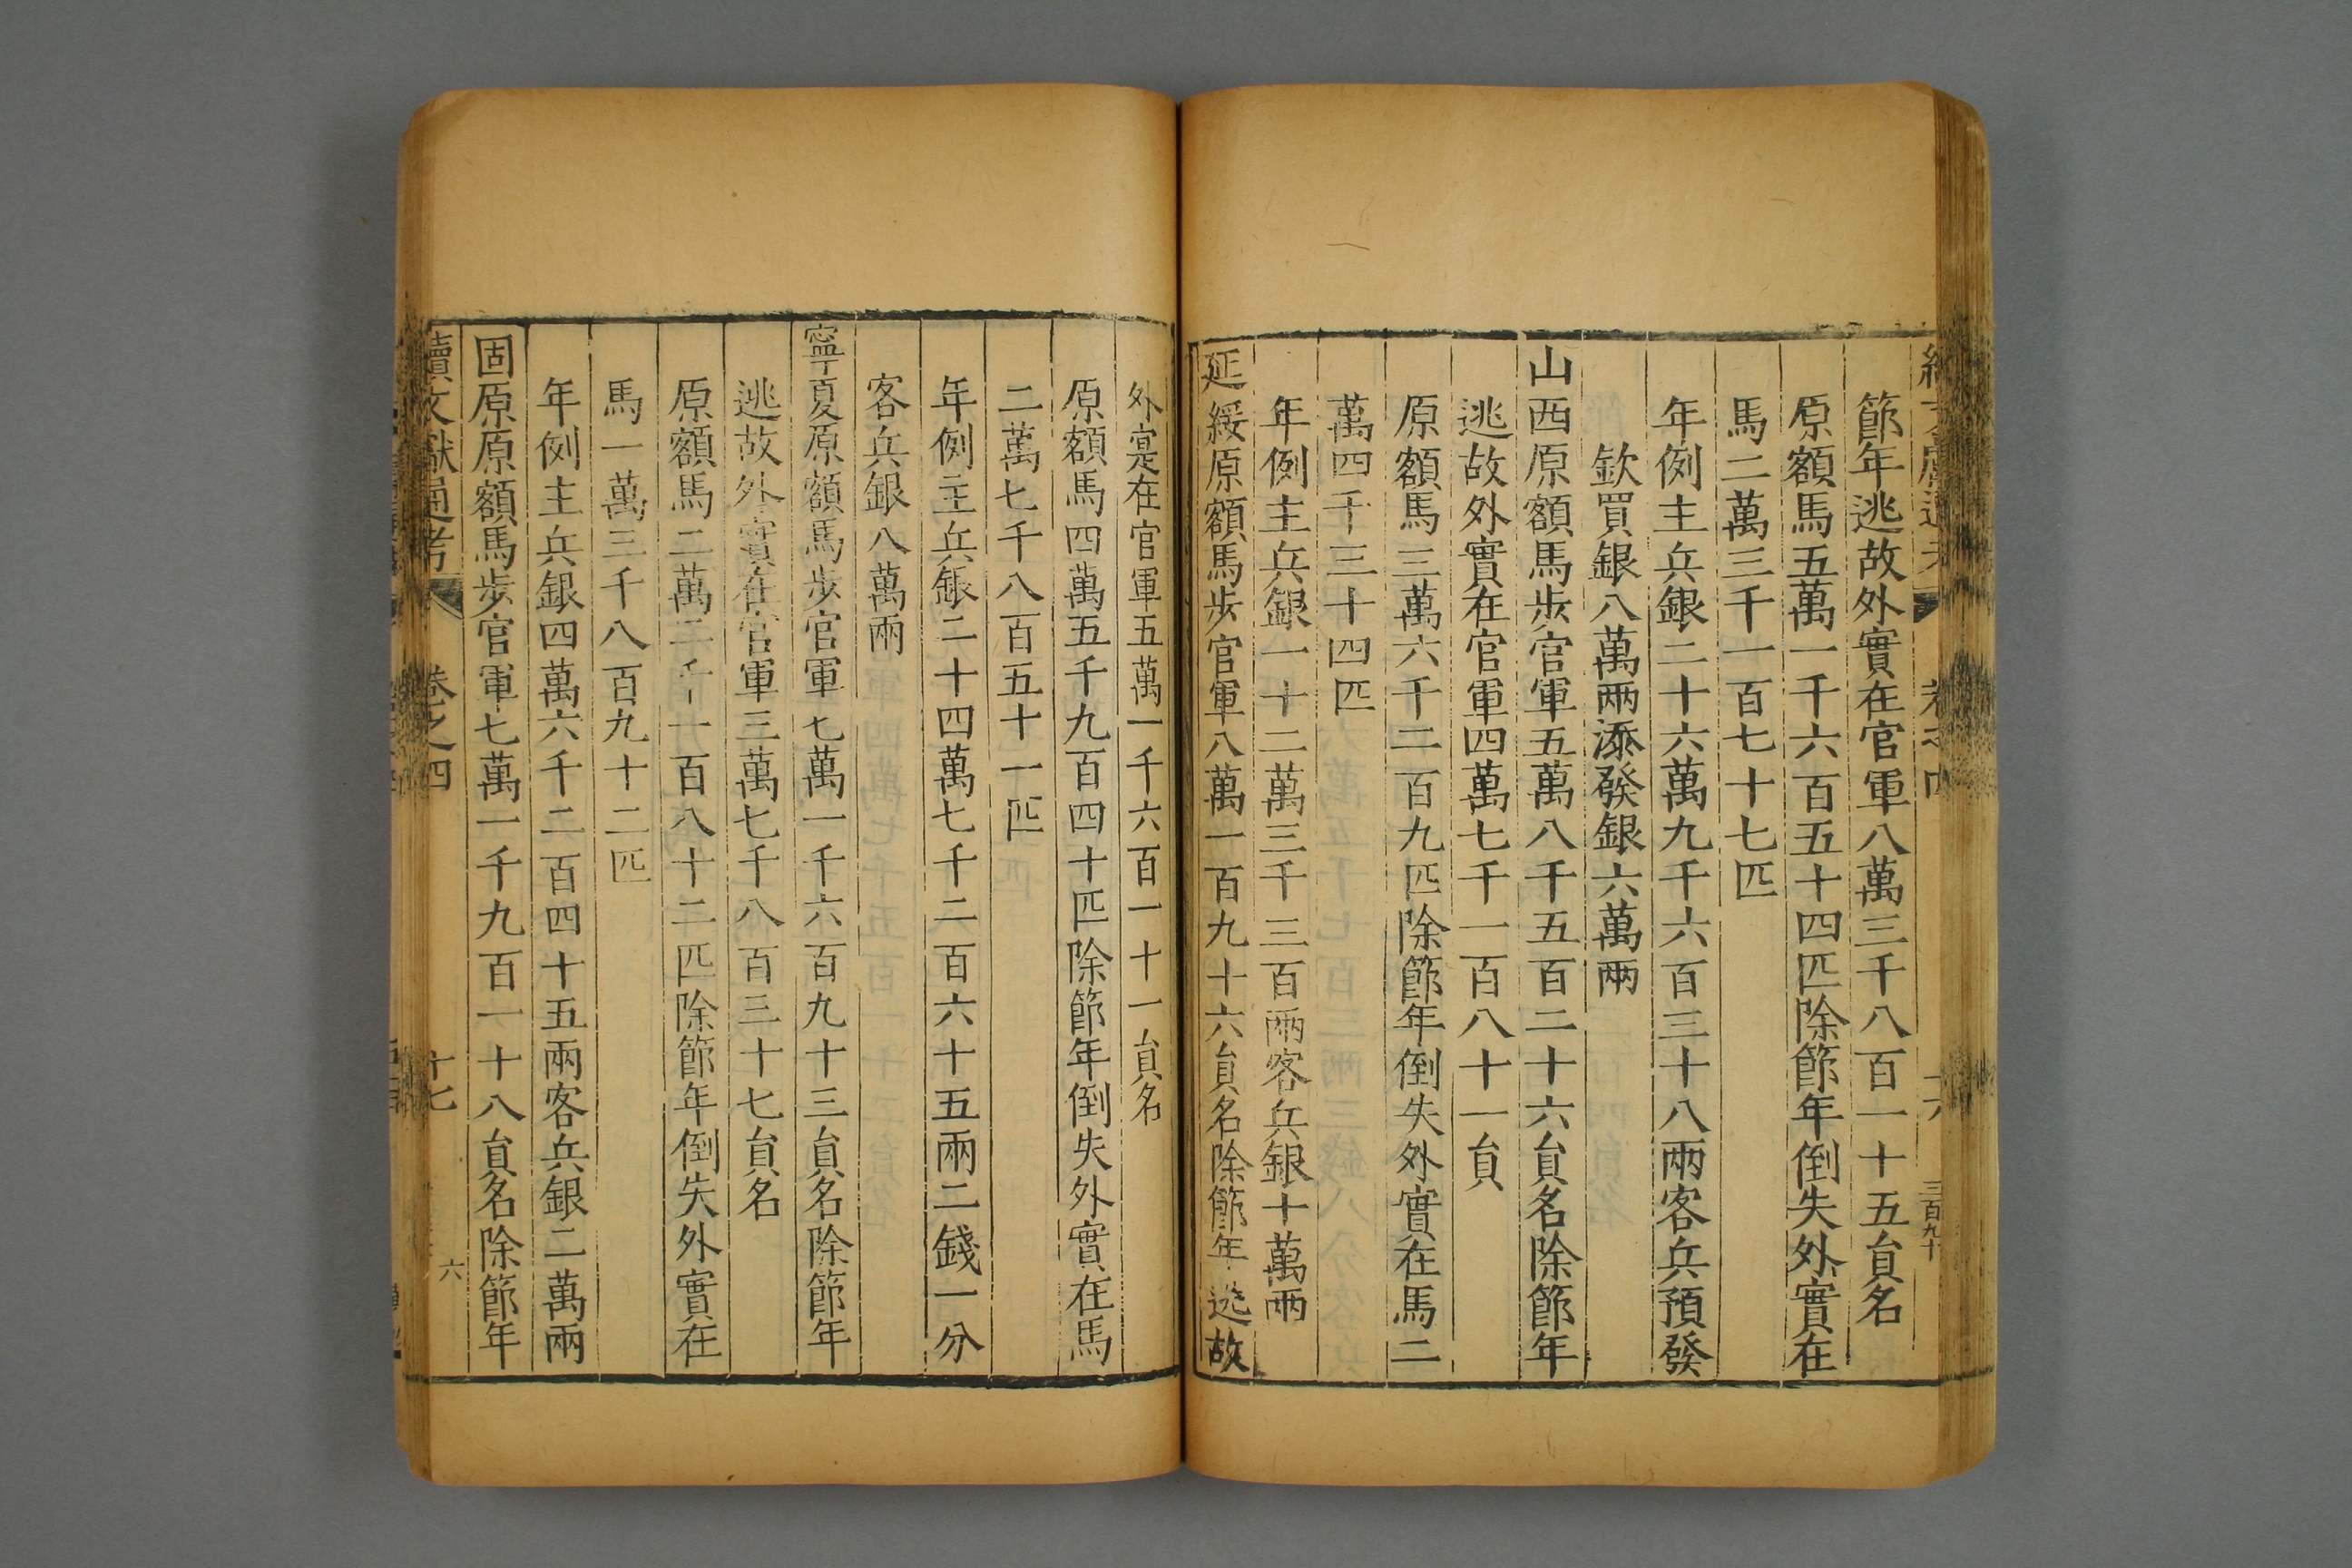 節年逃故外實在官軍八萬三千八百一十五員名
原額馬五萬一千六百五十四匹除節年倒失外實在
馬二萬三千一百七十七匹
年例主兵銀二十六萬九千六百三十八兩客兵預發
欽買銀八萬兩添發銀六萬兩
山西原額馬步官軍五萬八千五百二十六員名除節年
逃故外實在官軍四萬七千一百八十一員
原額馬三萬六千二百九匹除節年倒失外實在馬二
萬四千三十四匹
年例主兵銀一十二萬三千三百兩客兵銀十萬兩
延綏原額馬步官軍八萬一百九十六員名除節年逃故
外寔在官軍五萬一千六百一十一員名
原額馬四萬五千九百四十匹除節年倒失外實在馬
二萬七千八百五十一匹
年例主兵銀二十四萬七千二百六十五兩二錢一分
客兵銀八萬兩
寧夏原額馬步官軍七萬一千六百九十三員名除節年
逃故外實在官軍三萬七千八百三十七員名
原額馬二萬二千一百八十二匹除節年倒失外實在
馬一萬三千八百九十二匹
年例主兵銀四萬六千二百四十五兩客兵銀二萬兩
固原原額馬步官軍七萬一千九百一十八員名除節年
續文獻通考 卷之四 十七 六